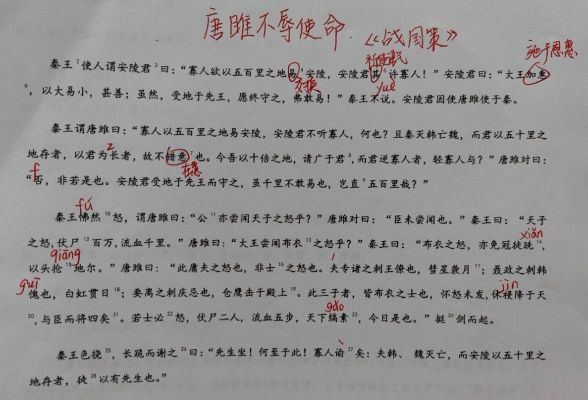 唐雎不辱使命 《战国策》
秦王²使人谓安陵君³曰：“寡人欲以五百里之地易⁴安陵，安陵君其⁵许寡人！”安陵君曰：“大王加惠
⁶，以大易小，甚善；虽然，受地于先王，愿终守之，弗敢易！”秦王不说。安陵君因使唐雎使于秦。
秦王谓唐雎曰：“寡人以五百里之地易安陵，安陵君不听寡人，何也？且秦灭韩亡魏，而君以五十里之
地存者，以君为长者，故不错意⁷也。今吾以十倍之地，请广于君⁸，而君逆寡人者，轻寡人与？”唐雎对曰：
“否，非若是也。安陵君受地于先王而守之，虽千里不敢易也，岂直⁹五百里哉？”
fú
秦王怫然¹⁰怒，谓唐雎曰：“公¹¹亦尝闻天子之怒乎？”唐雎对曰：“臣未尝闻也。”秦王曰：“天子
之怒，伏尸¹²百万，流血千里。”唐雎曰：“大王尝闻布衣¹³之怒乎？”秦王曰：“布衣之怒，亦免冠徒跣¹⁴，
xiǎn
qiāng
以头抢¹⁵地尔。”唐雎曰：“此庸夫之怒也，非士¹⁶之怒也。夫专诸之刺王僚也，彗星袭月¹⁷；聂政之刺韩
guī
傀也，白虹贯日¹⁸；要离之刺庆忌也，仓鹰击于殿上¹⁹。此三子者，皆布衣之士也，怀怒未发，休祲降于天
jìn
²⁰，与臣而将四矣²¹。若士必²²怒，伏尸二人，流血五步，天下缟素，今日是也。”挺²⁶剑而起。
gǎo
秦王色挠，长跪而谢之²⁶曰：“先生坐！何至于此！寡人谕²⁷矣：夫韩、魏灭亡，而安陵以五十里之
地存者，徒²⁸以有先生也。”